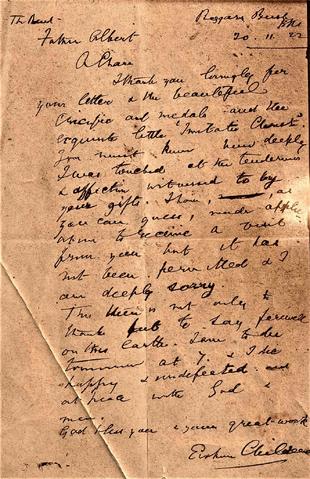 The Rev.
Beggars Bush Bks
Father Albert 20.11.22
A Chara
I thank you lovingly for
your letter & the beautiful
Crucifix and medals and the
exquisite little "Imitatio Christi"
You must know how deeply
I was touched at the tenderness
& affection witnessed to by
your gifts. I have, as
you can guess, made applic-
ation to receive a visit
from you but it has
not been permitted & I
am deeply sorry.
This then is not only to
thank but to say farewell
on this earth. I am to die
tomorrow at 7. & I die
happy & undefeated and
at peace with God &
men.
God bless you & your great work
Erskine Childers